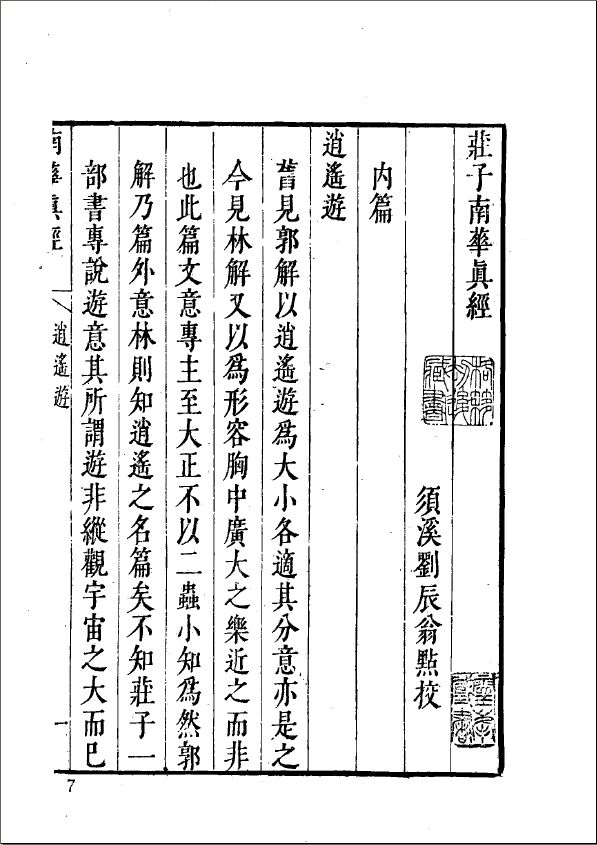 莊子南華眞經
須溪劉辰翁點校
內篇
逍遙遊
舊見郭解以逍遙遊爲大小各適其分意亦是之
今見林解又以爲形容胸中廣大之樂近之而非
也此篇文意專主至大正不以二蟲小知爲然郭
解乃篇外意林則知逍遙之名篇矣不知莊子一
部書專說遊意其所謂遊非縱觀宇宙之大而已
南華眞經
逍遙遊
一
7